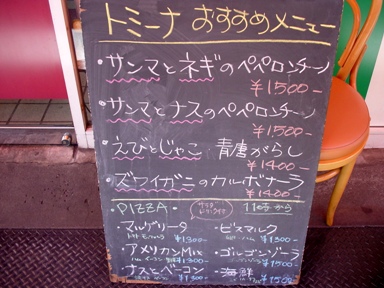 トミーナ おすすめメニュー
・サンマとネギのペペロンチーノ
¥1500-
・サンマとナスのペペロンチーノ
¥1500-
・えびとじゃこ 青唐がらし
¥1400-
・ズワイガニのカルボナーラ
¥1400-
・PIZZA・ 11時から
・マルゲリータ ¥1300-
・ビスマルク ¥1300-
・アメリカンMix ¥1300-
・ゴルゴンゾーラ ¥1500-
・ナスとベーコン ¥1300-
・海鮮 ¥1500-